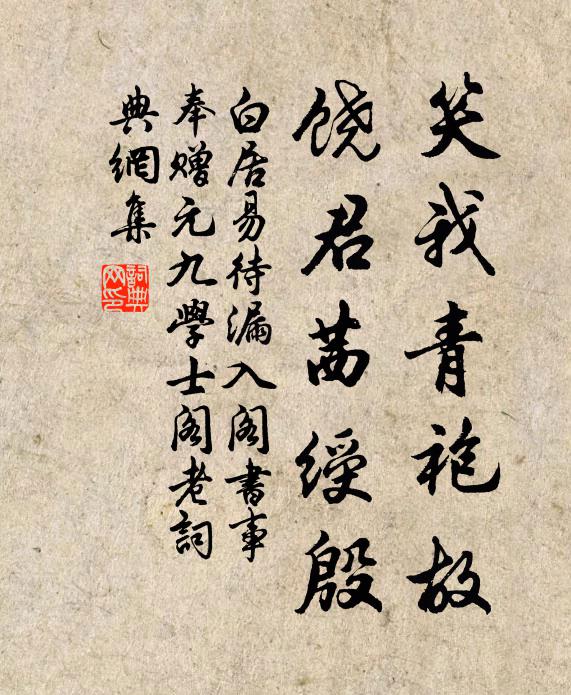 笑我青袍故
饶君茜绶殷
白居易待漏入阁書事
奉赠元九學士阁老詞
典網集
詞典網印